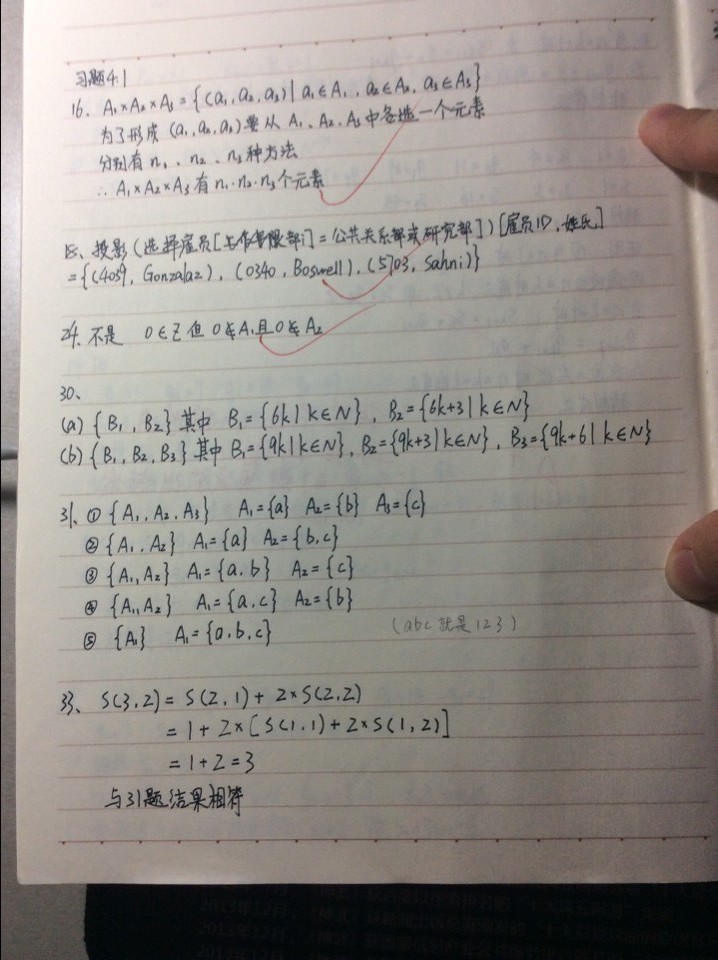 习题4.1
16. A₁×A₂×A₃ = {(a₁,a₂,a₃) | a₁∈A₁, a₂∈A₂, a₃∈A₃}
为了形成 (a₁,a₂,a₃) 要从 A₁、A₂、A₃ 中各选一个元素
分别有 n₁、n₂、n₃ 种方法
∴ A₁×A₂×A₃ 有 n₁·n₂·n₃ 个元素
投影(选择雇员[部门=公共关系部或研究部])[雇员ID,姓氏]
={(4059, Gonzalaz), (0340, Boswell), (5703, Sahni)}
24. 不是 0∈Z 但 0∉A₁且0∉A₂
30、
(a) {B₁, B₂} 其中 B₁={6k|k∈N}, B₂={6k+3|k∈N}
(b) {B₁, B₂, B₃} 其中 B₁={9k|k∈N}, B₂={9k+3|k∈N}, B₃={9k+6|k∈N}
31. ① {A₁, A₂, A₃} A₁={a} A₂={b} A₃={c}
② {A₁, A₂} A₁={a} A₂={b,c}
③ {A₁, A₂} A₁={a,b} A₂={c}
④ {A₁, A₂} A₁={a,c} A₂={b}
⑤ {A₁} A₁={a,b,c} (abc就是123)
33、 S(3,2) = S(2,1) + 2×S(2,2)
= 1+2×[S(1,1)+2×S(1,2)]
= 1+2=3
与31题结果相符